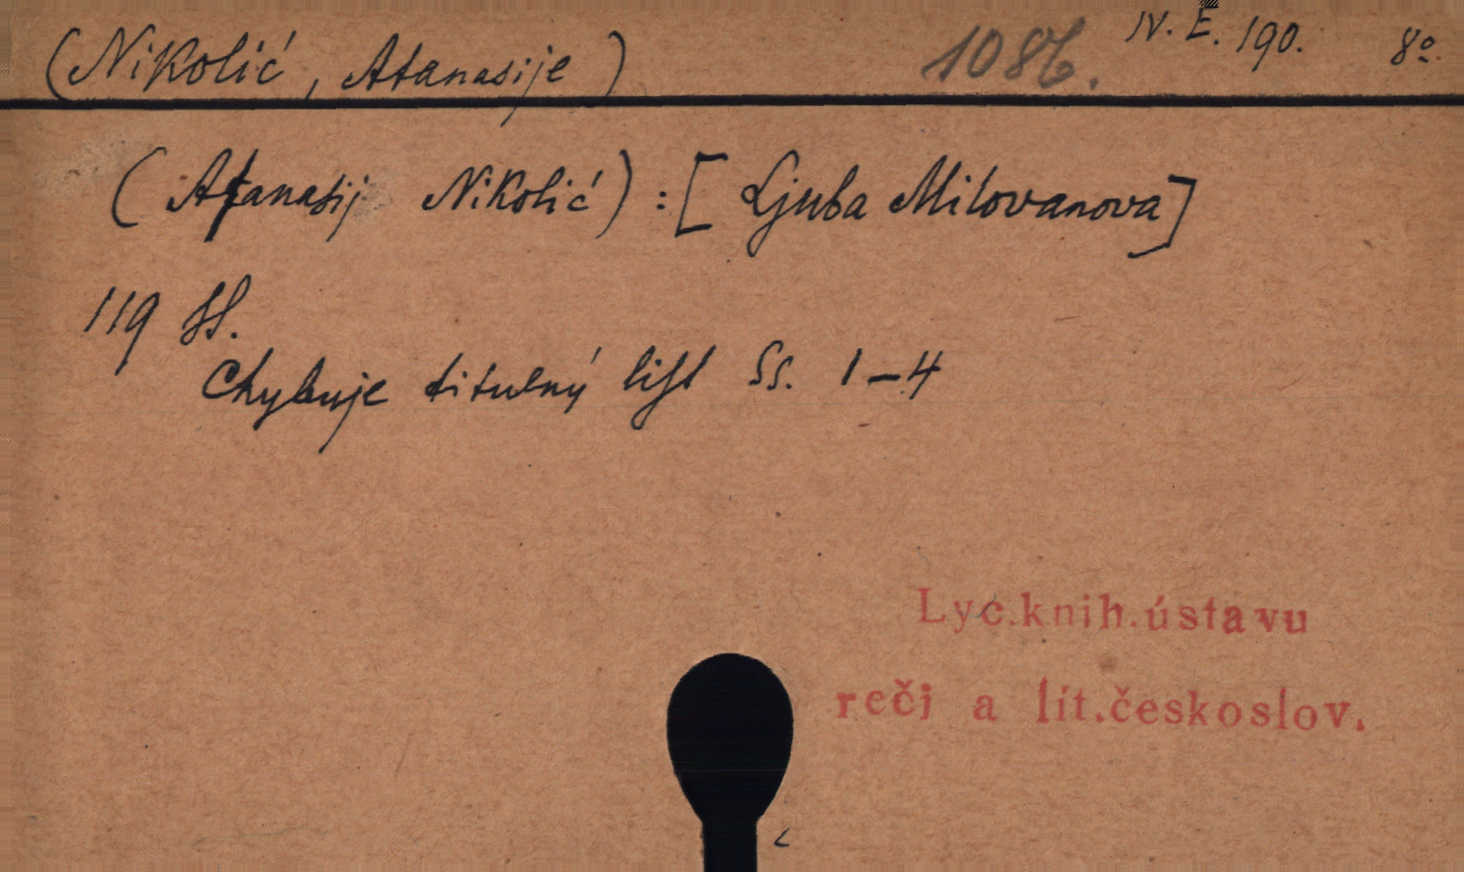 (Nikolić, Atanasije) 1086. IV. E. 190. 8º
(Atanasij Nikolić) : [Ljuba Milovanova]
119 ss.
Chybuje titulný list Ss. 1–4
Lyc.knih.ústavu
reči a lit.českoslov.